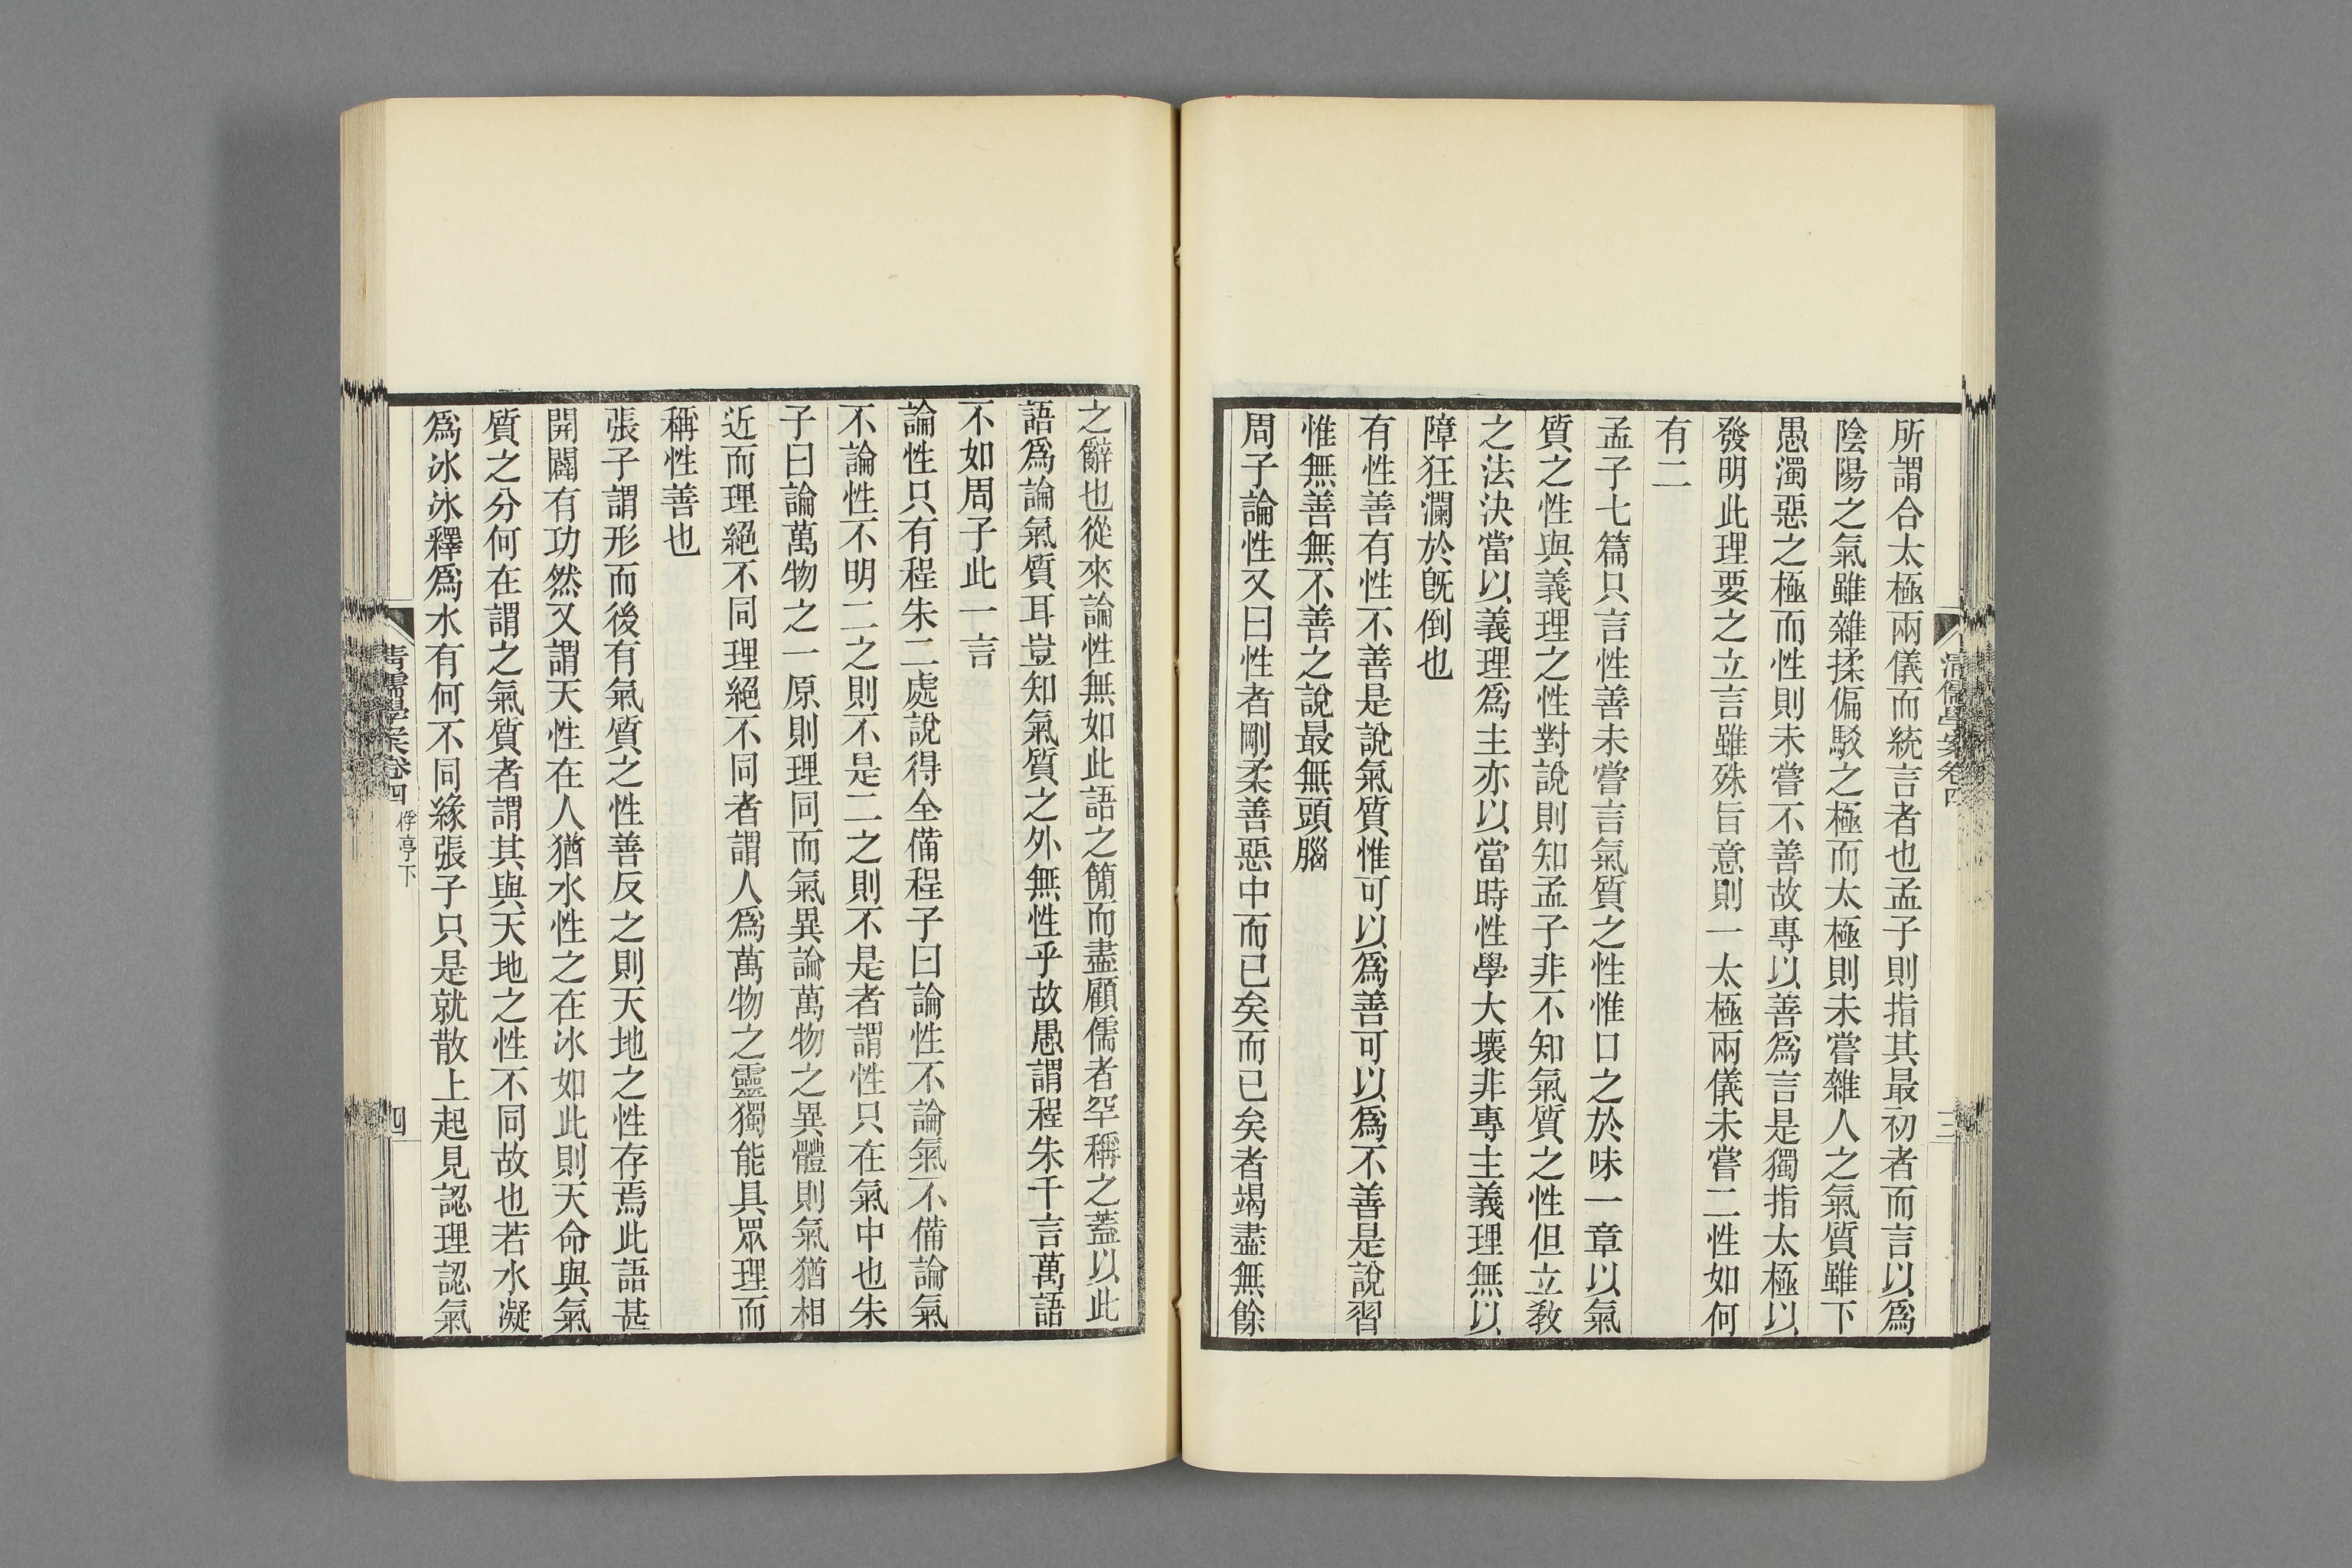 清儒學案卷四
三
所謂合太極兩儀而統言者也孟子則指其最初者而言以爲
陰陽之氣雖雜揉偏駁之極而太極則未嘗雜人之氣質雖下
愚濁惡之極而性則未嘗不善故專以善爲言是獨指太極以
發明此理要之立言雖殊旨意則一太極兩儀未嘗二性如何
有二
孟子七篇只言性善未嘗言氣質之性惟口之於味一章以氣
質之性與義理之性對說則知孟子非不知氣質之性但立教
之法決當以義理爲主亦以當時性學大壞非專主義理無以
障狂瀾於旣倒也
有性善有性不善是說氣質惟可以爲善可以爲不善是說習
惟無善無不善之說最無頭腦
周子論性又曰性者剛柔善惡中而已矣而已矣者竭盡無餘
之辭也從來論性無如此語之簡而盡顧儒者罕稱之蓋以此
語爲論氣質耳豈知氣質之外無性乎故愚謂程朱千言萬語
不如周子此一言
論性只有程朱二處說得全備程子曰論性不論氣不備論氣
不論性不明二之則不是二之則不是者謂性只在氣中也朱
子曰論萬物之一原則理同而氣異論萬物之異體則氣猶相
近而理絕不同理絕不同者謂人爲萬物之靈獨能具眾理而
稱性善也
張子謂形而後有氣質之性善反之則天地之性存焉此語甚
開闢有功然又謂天性在人猶水性之在冰如此則天命與氣
質之分何在謂之氣質者謂其與天地之性不同故也若水凝
爲冰冰釋爲水有何不同緣張子只是就散上起見認理認氣
清儒學案卷四 桴亭下
四